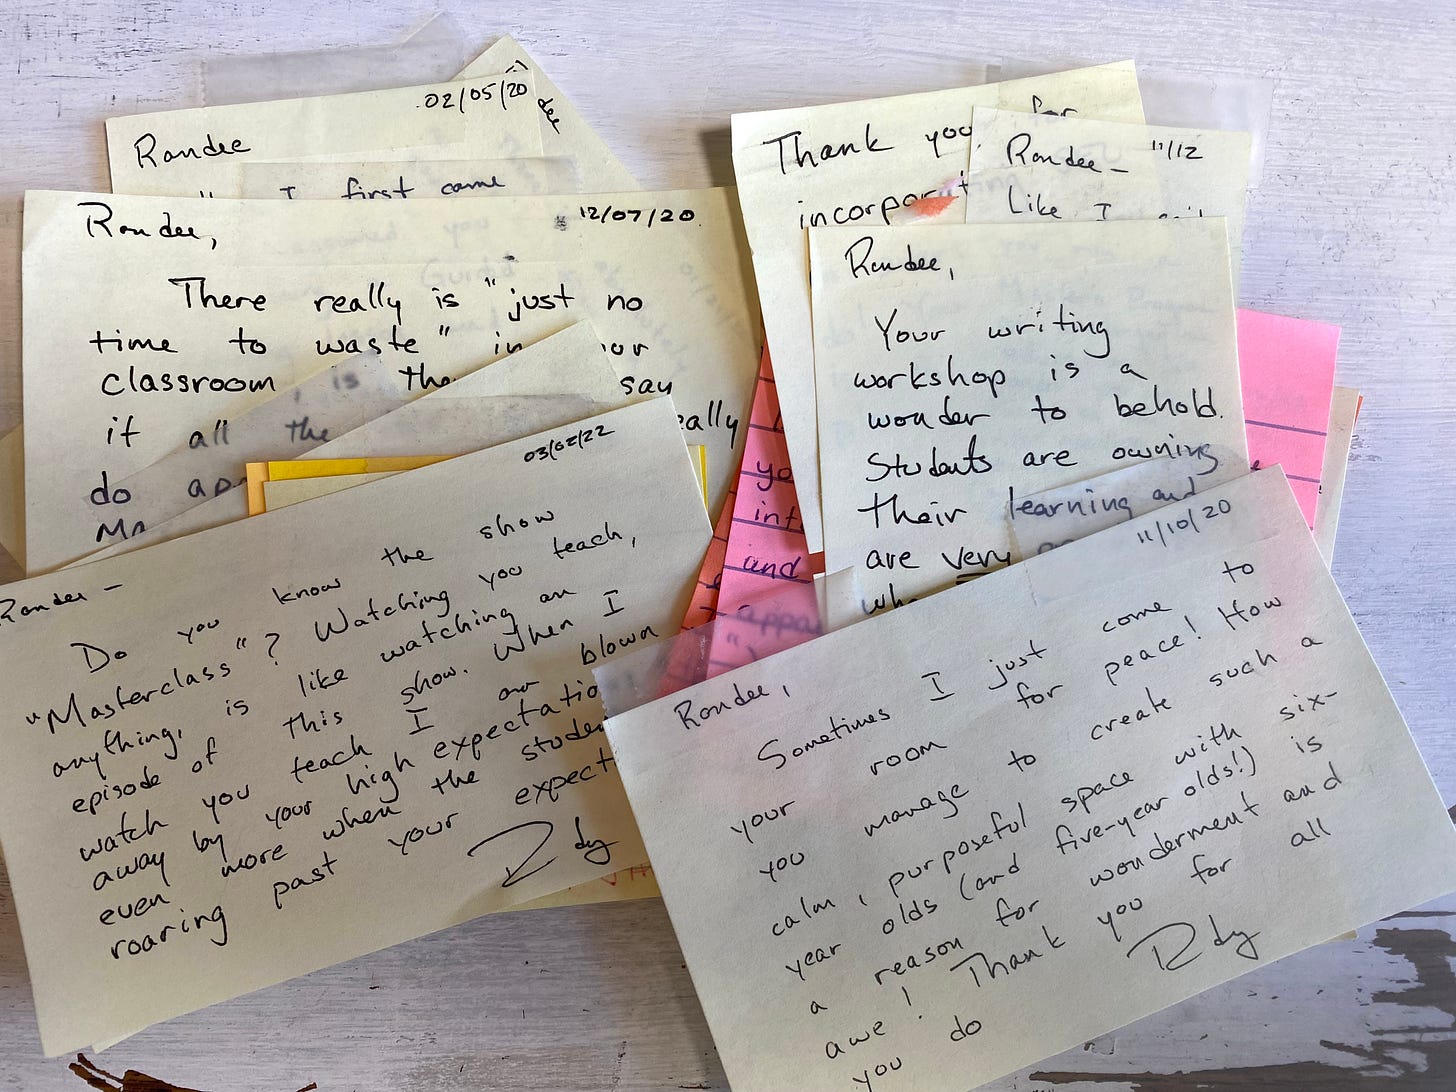 02/05/20
Randee
I first came
Randee,
12/07/20
There really is "just no
time to waste" in
classroom, is the say
if all the really
do
03/02/22
Randee -
Do you know the show
"Masterclass"? Watching you teach,
anything, is like watching an
episode of this show. When I
watch you teach I am blown
away by your high expectatio
even more when the studen
roaring past your expect
Rdy
Thank you for
incorporat
Randee - 11/12
Like I said
Randee,
Your writing
workshop is a
wonder to behold.
Students are owning
their learning and
are very
yo
int
and
appa
11/10/20
Randee,
Sometimes I just come to
your room for peace! How
you manage to create such a
calm, purposeful space with six-
year olds (and five-year olds!) is
a reason for wonderment and
awe! Thank you for all
you do
Rdy